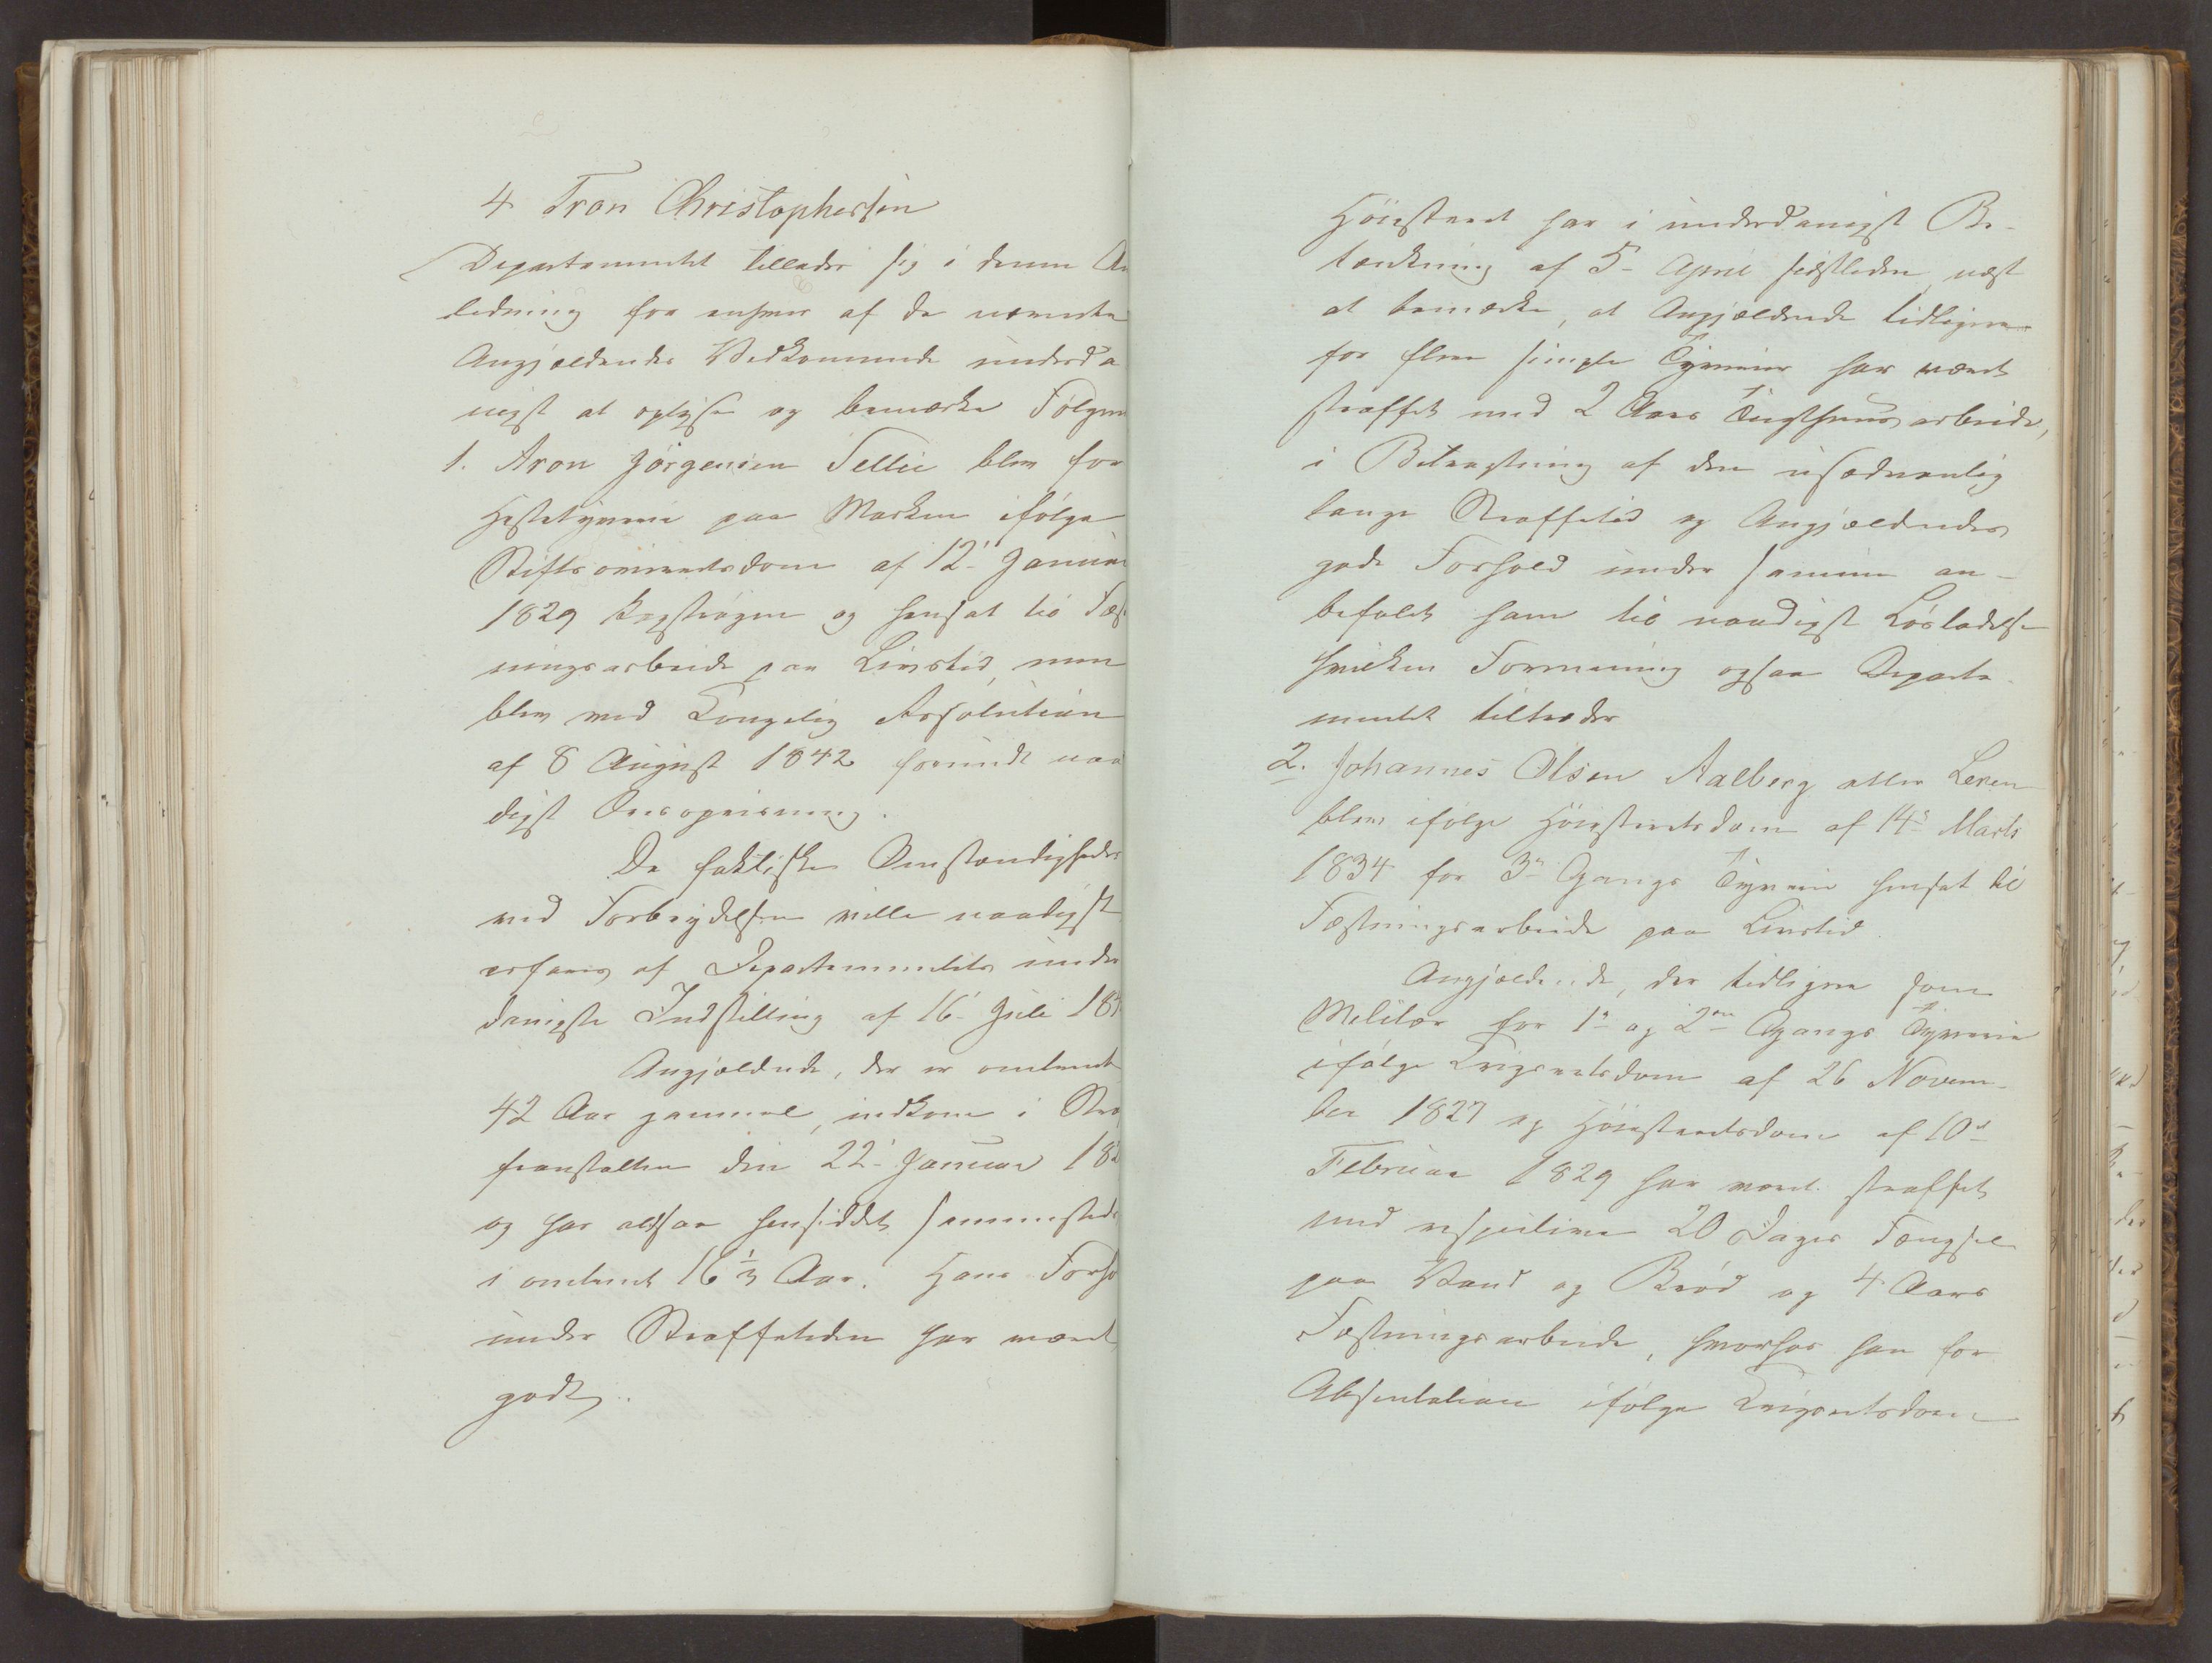 4 Tron Christophersen
Departementet tillader sig i denne An
ledning for enhver af de nævnte
Angjældendes Vedkommende underda
nigst at oplyse og bemærke Følgen
1. Aron Jørgensen Sellie blev for
Hestetyverie paa Marken ifølge
Stiftsoverretsdom af 12te Januar
1829 kagstrøgen og hensat til Fæst
ningsarbeide paa Livstid, men
blev ved Kongelig Resolution
af 8 August 1842 forundt naa
digst Æresopreisning.
De faktiske Omstændigheder
ved Forbrydelsen ville naadigst
erfares af Departementets under
danigste Indstilling af 16de Juli 18
Angjældende, der er omtrent
42 Aar gammel, indkom i Stra
feanstalten den 22de Januar 18
og har altsaa hensiddet sammesteds
i omtrent 16 1/3 Aar. Hans Forho
under Straffetiden har været
godt.
Høiesteret har i underdanigst Be-
tænkning af 5te April sidstleden, næst
at bemærke, at Angjældende tidligere
for flere simple Tyverier har været
straffet med 2 Aars Tugthuusarbeide,
i Betragtning af den usædvanlig
lange Straffetid og Angjældendes
gode Forhold under samme an-
befalet ham til naadigst Løsladelse
hvilken Formening ogsaa Departe-
mentet tiltræder
2. Johannes Olsen Aalberg eller Leren
blev ifølge Høiesteretsdom af 14de Marts
1834 for 3die Gangs Tyverie hensat til
Fæstningsarbeide paa Livstid.
Angjældende, der tidligere som
Militær for 1ste og 2den Gangs Tyverie
ifølge Krigsretsdom af 26 Novem-
ber 1827 og Høiesteretsdom af 10de
Februar 1829 har været straffet
med respective 20 Dages Fængsel
paa Vand og Brød og 4 Aars
Fæstningsarbeide, hvorhos han for
Absentation ifølge Krigsretsdom